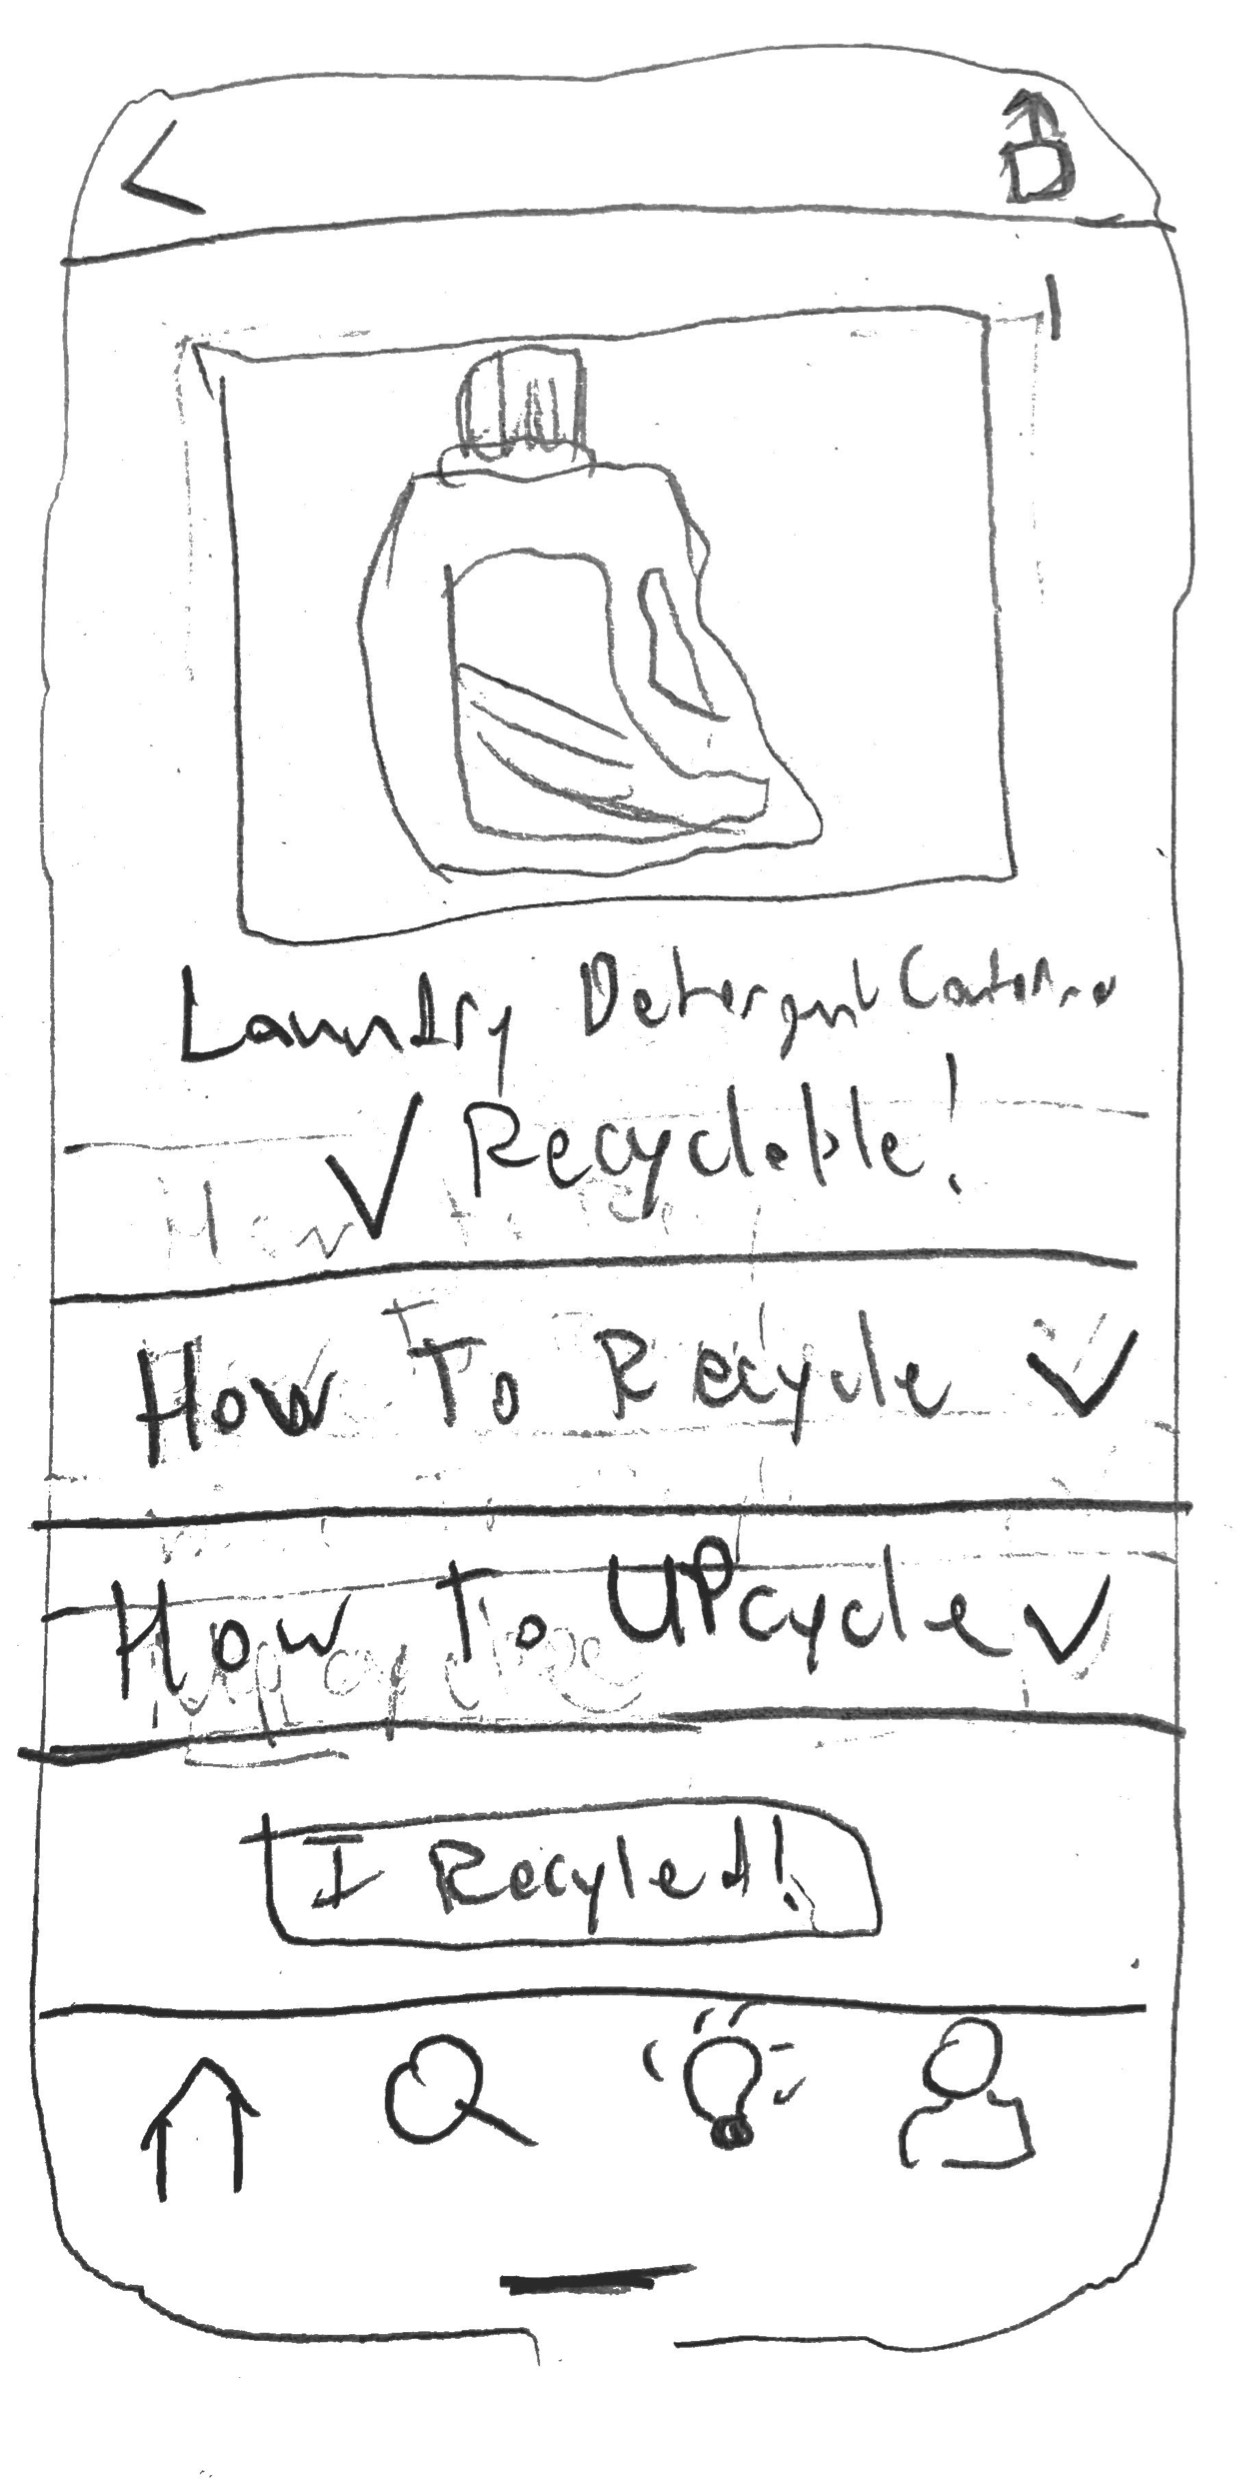 Laundry Detergent
✓ Recyclable!
How To Recycle
How To UPcycle
I Recyled!